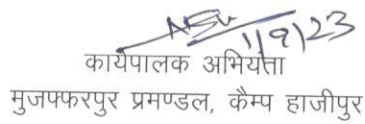 1/9/23
कार्यपालक अभियंता
मुजफ्फरपुर प्रमण्डल, कैम्प हाजीपुर